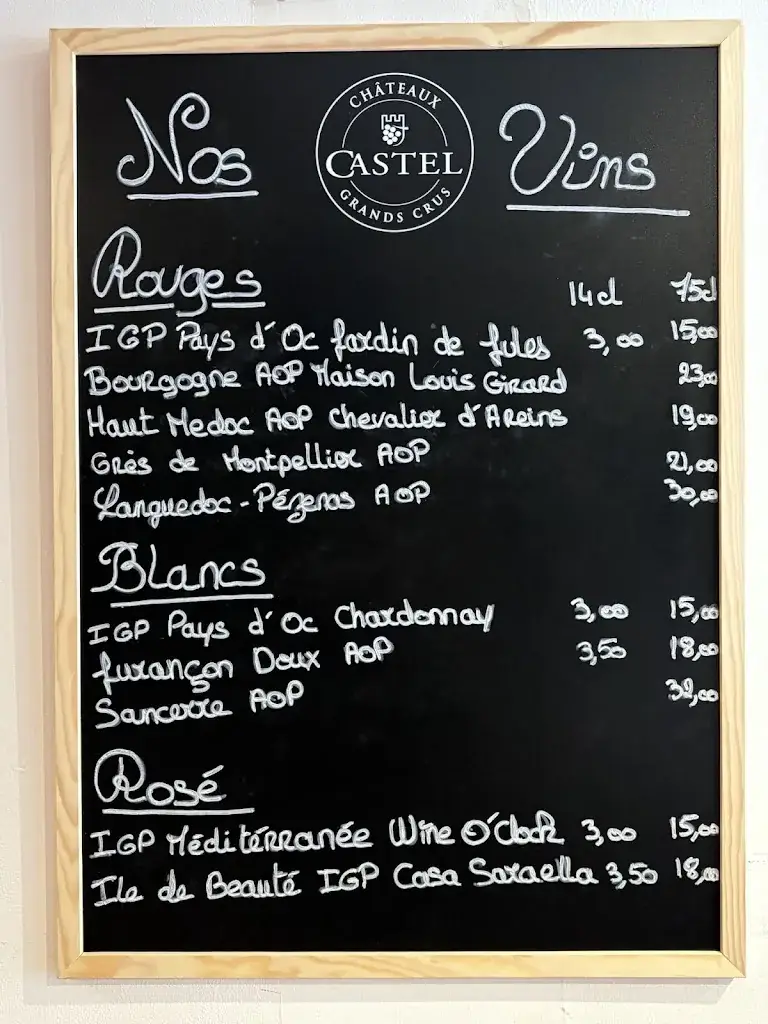 Nos
CHÂTEAUX
CASTEL
GRANDS CRUS
Vins
Rouges 14cl 75cl
IGP Pays d'Oc Jardin de Jules 3,00 15,00
Bourgogne AOP Maison Louis Girard 23,00
Haut Medoc AOP Chevalier d'Areins 19,00
Grès de Montpellier AOP 21,00
Languedoc-Pézenas AOP 30,00
Blancs
IGP Pays d'Oc Chardonnay 3,00 15,00
Jurançon Doux AOP 3,50 18,00
Sancerre AOP 32,00
Rosé
IGP Méditérranée Wine O'Clock 3,00 15,00
Ile de Beauté IGP Casa Saraella 3,50 18,00